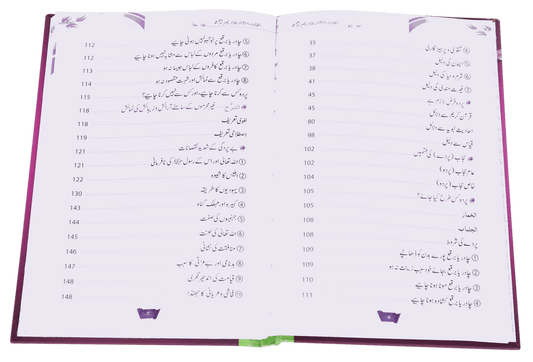 ④ تقویٰ و پرہیزگاری 35
⑤ ایمان کی دلیل 37
⑥ شرم و حیا کی دلیل 38
⑦ غیرت مندی کی دلیل 41
پردہ فرض لازم ہے 45
قرآن کریم سے دلائل 45
احادیث نبویہ سے دلائل 80
قیاس سے دلیل 98
حجاب (پردے) کی قسمیں 102
عام حجاب (پردہ) 102
خاص حجاب (پردہ) 104
پردہ کس طرح کیا جائے؟ 105
الخمار 105
الجلباب 108
پردے کی شروط 108
① چادر یا برقع پورے بدن کو ڈھانپے 109
② چادر یا برقع بجائے خود سبب زینت نہ ہو 109
③ چادر یا برقع موٹا ہونا چاہیے 110
④ چادر یا برقع کشادہ ہونا چاہیے 111
⑤ چادر یا برقع پر خوشبو نہیں ہونی چاہیے 112
⑥ چادر یا برقع مردوں کے لباس سے مشابہ نہیں ہونا چاہیے 112
⑦ چادر یا برقع کافروں کے لباس جیسا نہ ہو 114
⑧ چادر یا برقع سے نمائش اور شہرت مقصود نہ ہو 114
پردہ کس سے کرنا چاہیے، اور کس سے نہیں کرنا چاہیے؟ 115
التبرج - غیر محرموں کے سامنے آرائش و زیبائش کی نمائش 118
لغوی تعریف 118
اصطلاحی تعریف 119
بے پردگی کے شدید نقصانات 121
① اللہ تعالیٰ اور اس کے رسول ﷺ کی نافرمانی 121
② ابلیس کا شیوہ 122
③ یہودیوں کا طریقہ 130
④ کبیرہ اور مہلک گناہ 143
⑤ جہنمیوں کی صفت 144
⑥ اللہ تعالیٰ کی لعنت 145
⑦ منافقت کی نشانی 146
⑧ بدنامی اور بے عزتی کا سبب 147
⑨ قیامت کی اندھیر نگری 148
⑩ فحاشی و عریانی کا جھنڈا 148